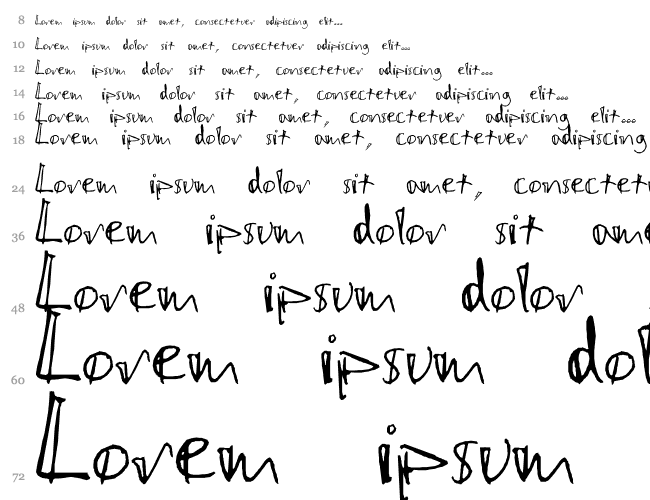 8 Lorem ipsum dolor sit amet, consectetuer adipiscing elit...
10 Lorem ipsum dolor sit amet, consectetuer adipiscing elit...
12 Lorem ipsum dolor sit amet, consectetuer adipiscing elit...
14 Lorem ipsum dolor sit amet, consectetuer adipiscing elit...
16 Lorem ipsum dolor sit amet, consectetuer adipiscing elit...
18 Lorem ipsum dolor sit amet, consectetuer adipiscing
24 Lorem ipsum dolor sit amet, consectetu
36 Lorem ipsum dolor sit ame
48 Lorem ipsum dolor
60 Lorem ipsum dol
72 Lorem ipsum